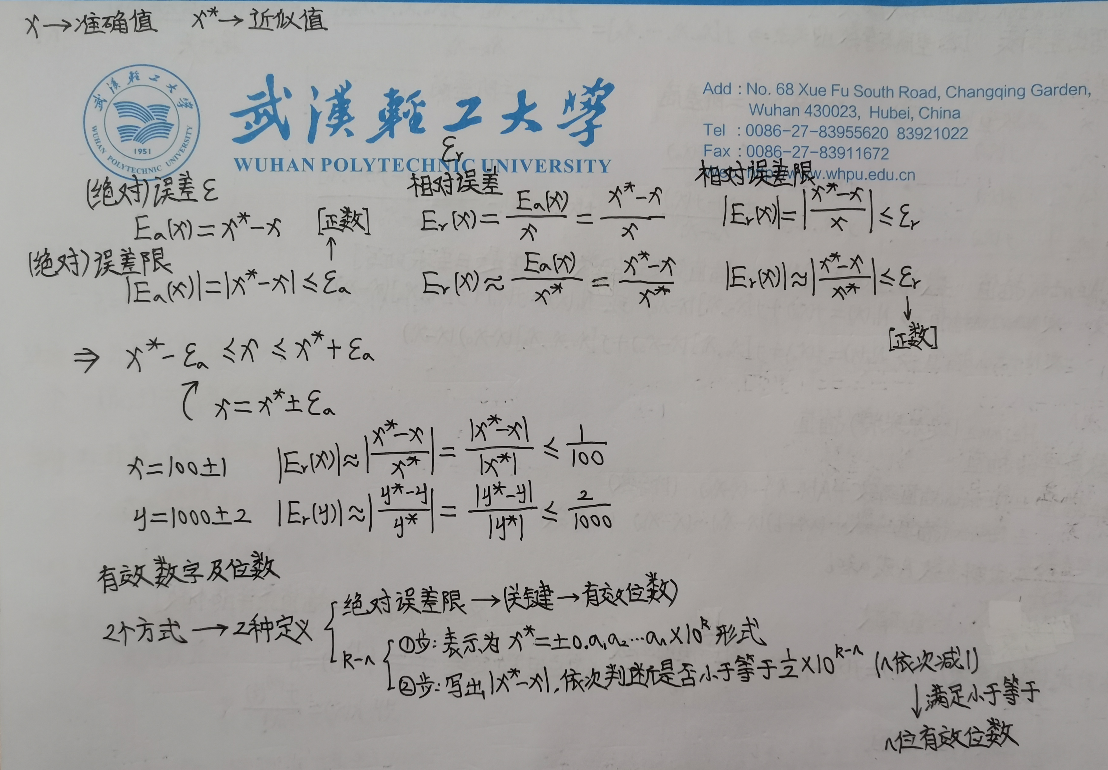 x→准确值 x*→近似值
武漢輕工大學
WUHAN POLYTECHNIC UNIVERSITY
武漢輕工大學
WUHAN POLYTECHNIC UNIVERSITY
1951
Add : No. 68 Xue Fu South Road, Changqing Garden,
Wuhan 430023, Hubei, China
Tel : 0086-27-83955620 83921022
Fax : 0086-27-83911672
www.whpu.edu.cn
(绝对)误差ε
Ea(x)=x*-x [正数]
(绝对)误差限
|Ea(x)|=|x*-x|≤εa
εr
相对误差
Er(x)=Ea(x)/x=(x*-x)/x
Er(x)≈Ea(x)/x*=(x*-x)/x*
相对误差限
|Er(x)|=|(x*-x)/x|≤εr
|Er(x)|≈|(x*-x)/x*|≤εr
↓
[正数]
⇒ x*-εa≤x≤x*+εa
x=x*±εa
x=100±1 |Er(x)|≈|(x*-x)/x*|=|x*-x|/|x*|≤1/100
y=1000±2 |Er(y)|≈|(y*-y)/y*|=|y*-y|/|y*|≤2/1000
有效数字及位数
2个方式→2种定义
绝对误差限→(关键→有效位数)
k-n
①步:表示为x*=±0.a₁a₂…aₙ×10^k形式
②步:写出|x*-x|,依次判断是否小于等于1/2×10^(k-n) (n依次减1)
↓满足小于等于
n位有效位数